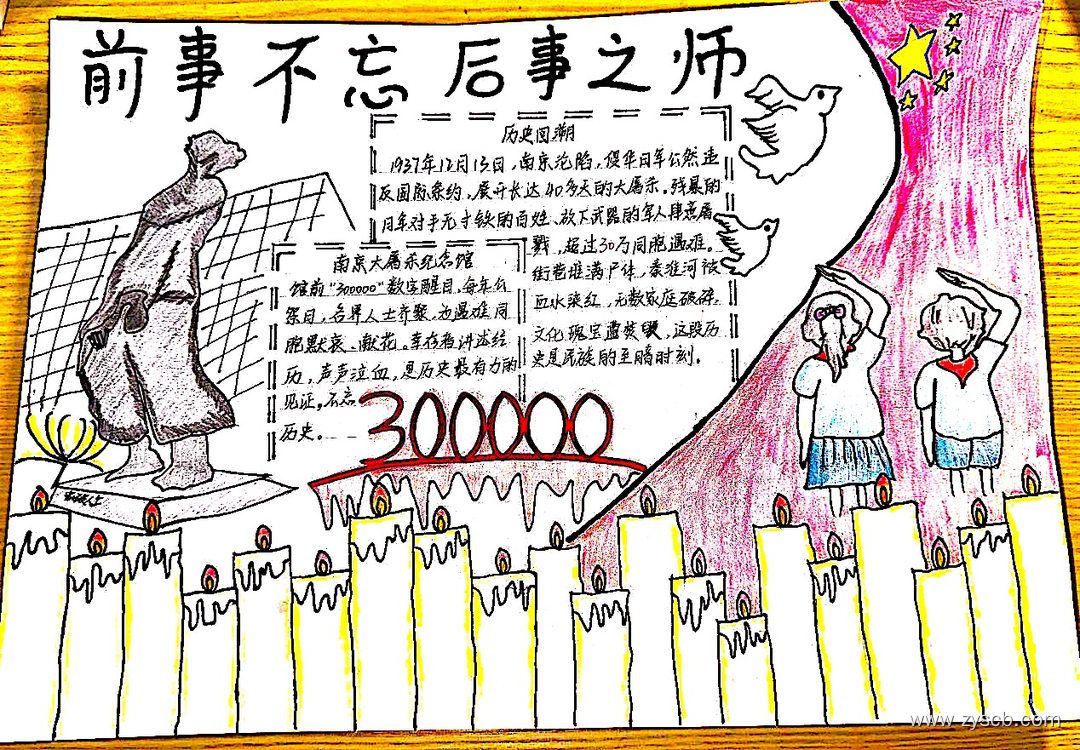 前事不忘后事之师
历史回溯
1937年12月13日,南京沦陷,侵华日军公然违
反国际条约,展开长达40多天的大屠杀。残暴的
日军对手无寸铁的百姓、放下武器的军人肆意屠
戮,超过30万同胞遇难。
街巷堆满尸体,秦淮河被
血水染红,无数家庭破碎,
文化瑰宝遭焚毁,这段历
史是民族的至暗时刻。
南京大屠杀纪念馆
馆前"300000"数字醒目,每年公
祭日,各界人士齐聚,为遇难同
胞默哀、献花。幸存者讲述经
历,声声泣血,是历史最有力的
见证。不忘
历史。
300000
www.zyscb.com